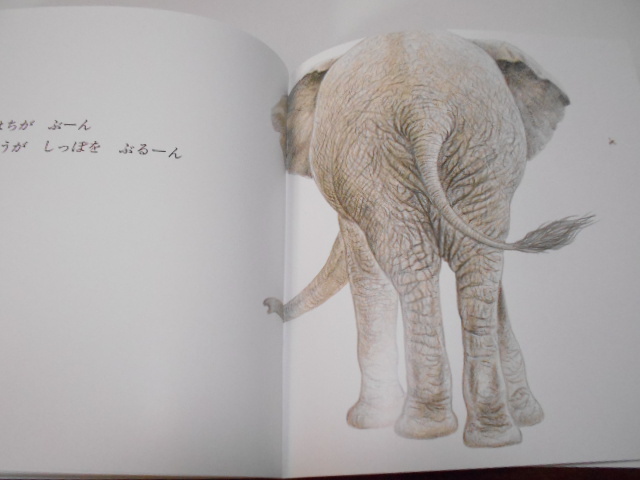 ちが ぶーん
うが しっぽを ぶるーん